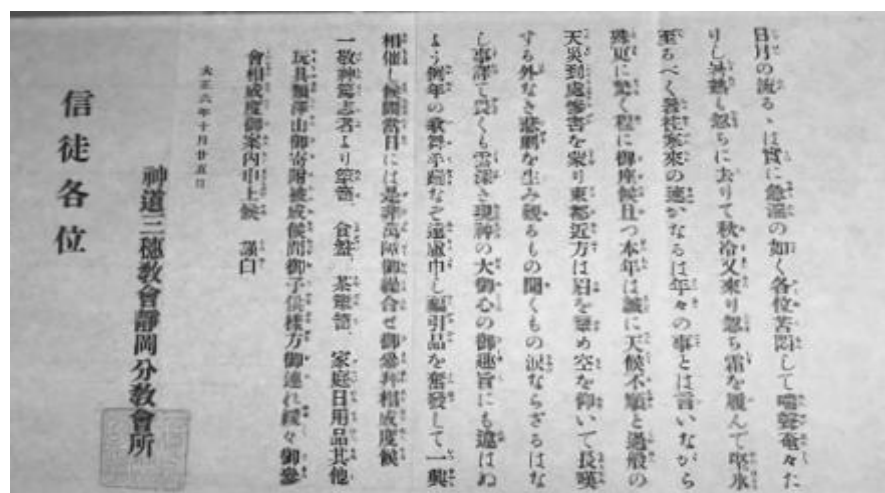 日月の流るゝは實に急湍の如く各位苦悶して喘聲奄々た
りし暑熱も忽ちに去りて秋冷又來り忽ち霜を履んで堅氷
至るべく暑往寒來の速かなるは年々の事とは言いながら
殊更に驚く程に御座候且つ本年は誠に天候不順と過般の
天災到處慘害を蒙り東都近方は眉を顰め空を仰いで長嘆
する外なき悲劇を生み觀るもの聞くもの涙ならざるはな
し事詳で畏くも雲深き現神の大御心の御趣旨にも違はぬ
よう例年の歌舞手踊なぞ遠慮巾し福引品を奮發して一興
相催し候間當日には是非萬障御繰合せ御參拜相成度候
一敬神篤志者より簞笥、食盤、茶簞笥、家庭日用品其他
玩具類澤山御寄附被成候間御子供樣方御連れ緩々御參
會相成度御案内申上候 謹白
大正六年十月廿五日
神道三穗教會靜岡分教會所
信徒各位